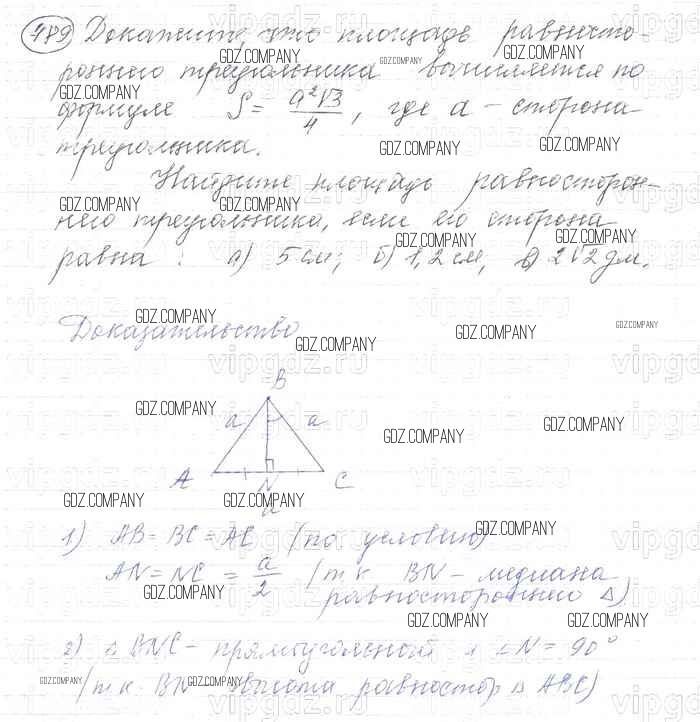 489 Докажите, что площадь равносто-
роннего треугольника вычисляется по
формуле S = a²√3/4, где a – сторона
треугольника.
Найдите площадь равносторон-
него треугольника, если его сторона
равна: а) 5 см; б) 1,2 см; в) 2√2 дм.
Доказательство
B
a a
A N C
a
1) AB = BC = AC (по условию)
AN = NC = a/2 (т.к. BN – медиана
равностороннего Δ)
2) Δ BNC – прямоугольный, ∠N = 90°
(т.к. BN – высота равностор. Δ ABC)
GDZ.COMPANY
vipgdz.ru